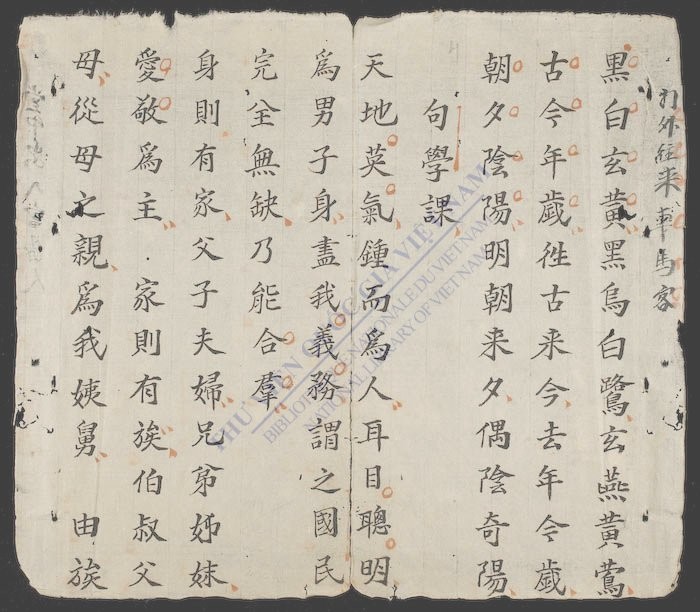 黑白玄黃黑烏白鷺玄燕黃鶯
古今年歲徃古来今去年今歲
朝夕陰陽明朝来夕偶陰奇陽
句學課
天地英氣鍾而為人耳目聰明
為男子身盡我義務謂之國民
完全無缺乃能合羣
身則有家父子夫婦兄弟姊妹
愛敬為主家則有族伯叔父
母從母之親為我姨舅 由族
THƯ VIỆN QUỐC GIA VIỆT NAM
BIBLIOTHÈQUE NATIONALE DU VIETNAM
NATIONAL LIBRARY OF VIETNAM